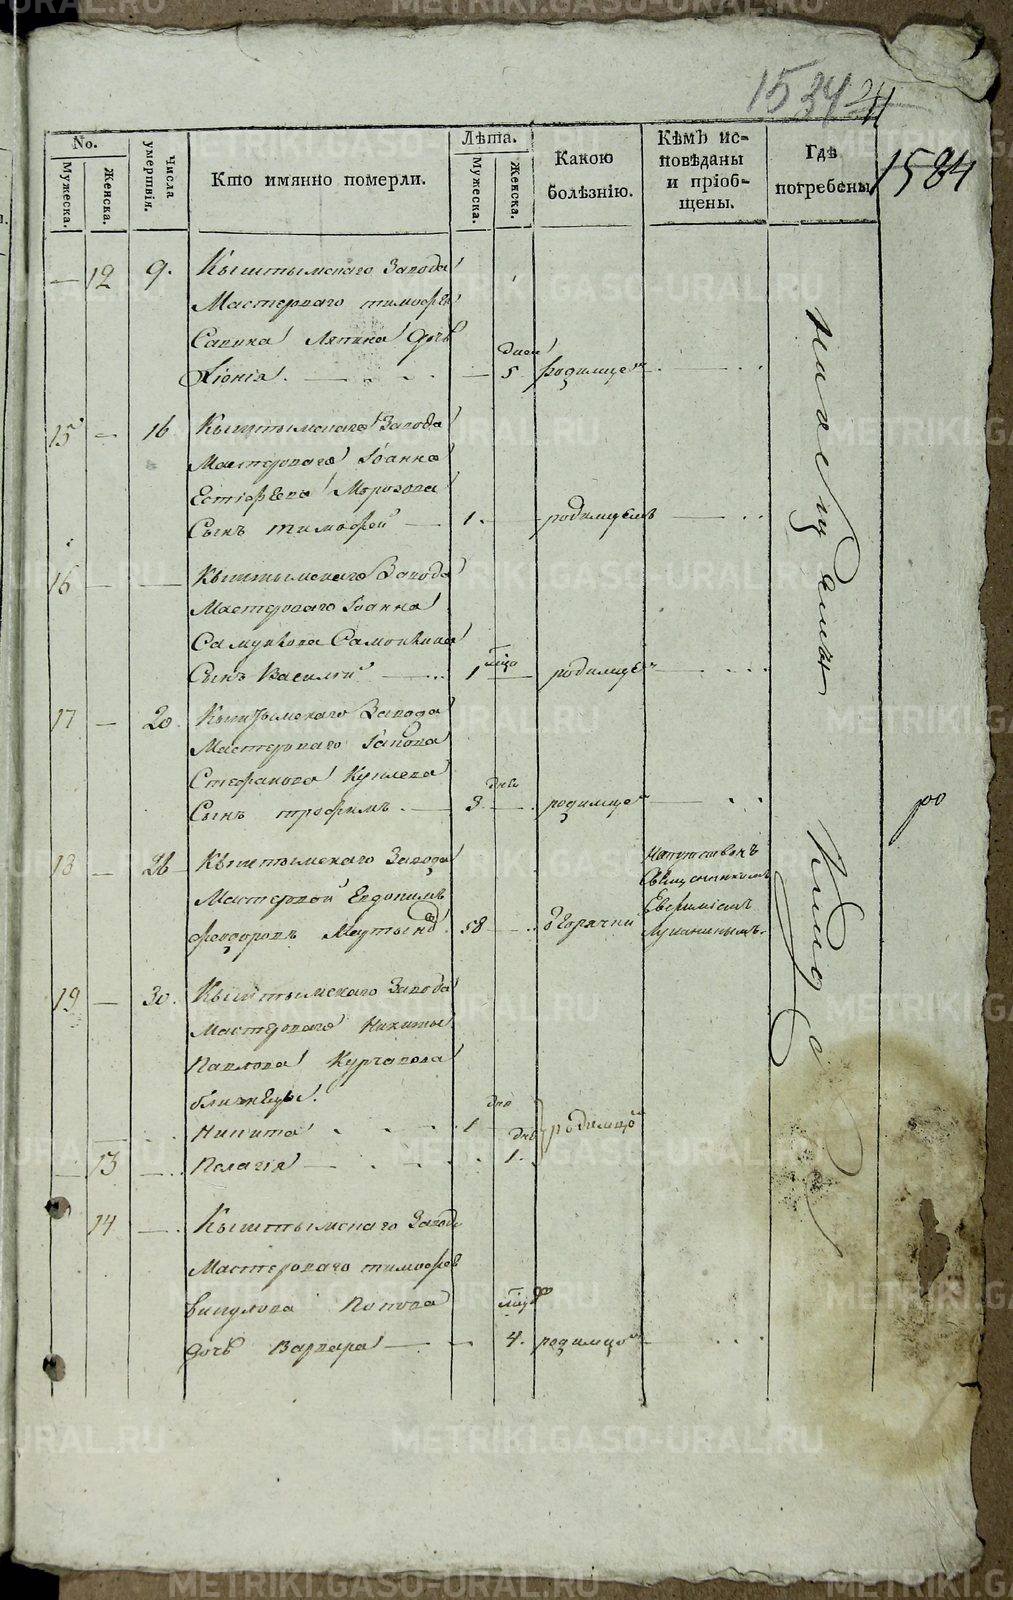 METRIKI.GASO-URAL.RU
1534
1584
No.
Мужеска.
Женска.
Числа умертвія.
Кто имянно померли.
Лѣта.
Мужеска.
Женска.
Какою болѣзнію.
Кѣмъ исповѣданы и пріобщены.
Гдѣ погребены
12 9. Кыштымскаго Завода
Мастероваго тимофея
Савина Ляпина дочь
дней
Хіонія. 5 родимцемъ
15 16 Кыштымскаго Завода
Мастероваго Іоанна
Естифѣева Морозова
Сынъ тимофей 1. родимцемъ
16 Кыштымскаго Завода
Мастероваго Іоанна
Самочкина
Сынъ Василій 1 родимцемъ
17 20. Кыштымскаго Завода
Мастероваго Іакова
Стефанова
Сынъ трофимъ 3. родимцомъ
26 Кыштымскаго Завода
Мастеровой Евдокимъ
феодоровъ 58 Горячки
Священникомъ
Евфиміемъ
Лукинымъ.
19 30. Кыштымскаго Завода
Мастероваго Никиты
Павлова Курчавова
близнецы.
Никита 1 родимцомъ
13 Пелагія 1.
14 Кыштымскаго Завода
Мастероваго тимофея
Попова
дочь Варвара 4. родимцомъ
на общемъ
кладб